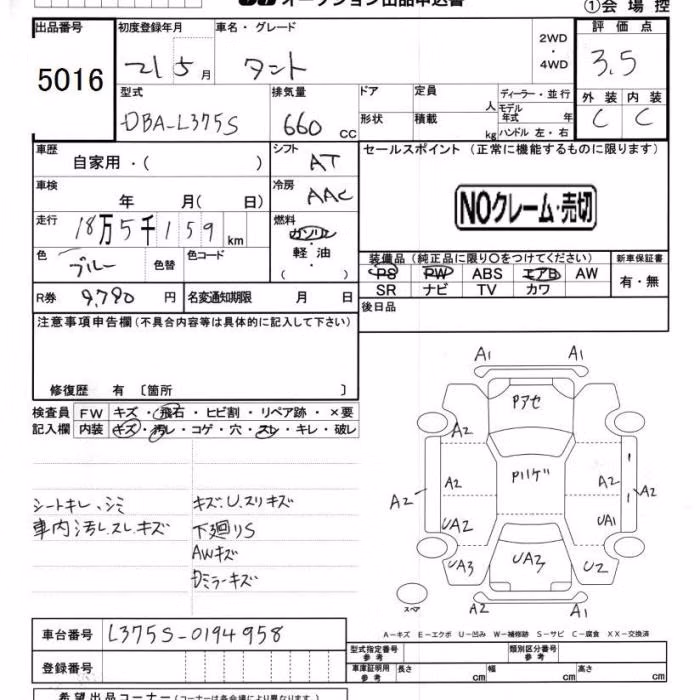 オークション出品申込書
①会場控
出品番号 初度登録年月 車名・グレード 2WD・4WD 評価点
5016 21 5月 タント 3.5
型式 排気量 ドア 定員 人 ディーラー・並行 外装 内装
DBA-L375S 660 CC 形状 積載 kg モデル年式 年 C C
ハンドル 左・右
車歴 自家用・( ) シフト AT セールスポイント (正常に機能するものに限ります)
車検 年 月(日) 冷房 AAC
NOクレーム・売切
走行 18万5千159km 燃料 ガソリン・軽油・( )
色 ブルー 色替 色コード
装備品 (純正品に限り○をつけてください) 新車保証書
PS PW ABS エアB AW 有・無
SR ナビ TV カワ
R券 9,790円 名変通知期限 月 日 後日品
注意事項申告欄 (不具合内容等は具体的に記入して下さい)
修復歴 有 〔箇所 〕
検査員記入欄 FW キズ・飛石・ヒビ割・リペア跡・×要
内装 キズ・汚レ・コゲ・穴・スレ・キレ・破レ
シートキレ、シミ キズ、U、スリキズ
車内汚レ、スレ、キズ 下廻りS
AWキズ
ミラーキズ
A1 A1
Pアセ
A2
A2 A2 A2 A2
UA2 UA1
UA3 UA3 U2
スペア A2 A1
A-キズ E-エクボ U-凹み W-補修跡 S-サビ C-腐食 XX-交換済
車台番号 L375S-0194958
登録番号
型式指定番号 参考 類別区分番号 参考
車庫証明用 参考 長さ cm 幅 cm 高さ cm
希望出品コーナー (コーナーは各会場により異なります。)